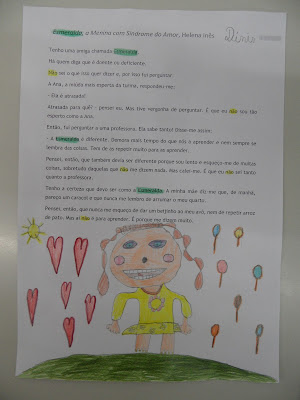 Esmeralda, a Menina com Síndrome do Amor, Helena Inês
Dinis
Tenho uma amiga chamada Esmeralda.
Há quem diga que é doente ou deficiente.
Não sei o que isso quer dizer e, por isso fui perguntar.
A Ana, a miúda mais esperta da turma, respondeu-me:
- Ela é atrasada!
Atrasada para quê? - pensei eu. Mas tive vergonha de perguntar. É que eu não sou tão
esperta como a Ana.
Então, fui perguntar a uma professora. Ela sabe tanto! Disse-me assim:
- A Esmeralda é diferente. Demora mais tempo do que nós a aprender e nem sempre se
lembra das coisas. Tem de se repetir muito para ela aprender.
Pensei, então, que também devia ser diferente porque sou lento e esqueço-me de muitas
coisas, sobretudo daquelas que não me dizem nada. Mas calei-me. É que eu não sei tanto
quanto a professora.
Tenho a certeza que devo ser como a Esmeralda. A minha mãe diz-me que, de manhã,
pareço um caracol e que nunca me lembro de arrumar o meu quarto.
Pensei, então, que nunca me esqueço de dar um beijinho ao meu avô, nem de repetir arroz
de pato. Mas aí não é para aprender. É porque me dizem muito.